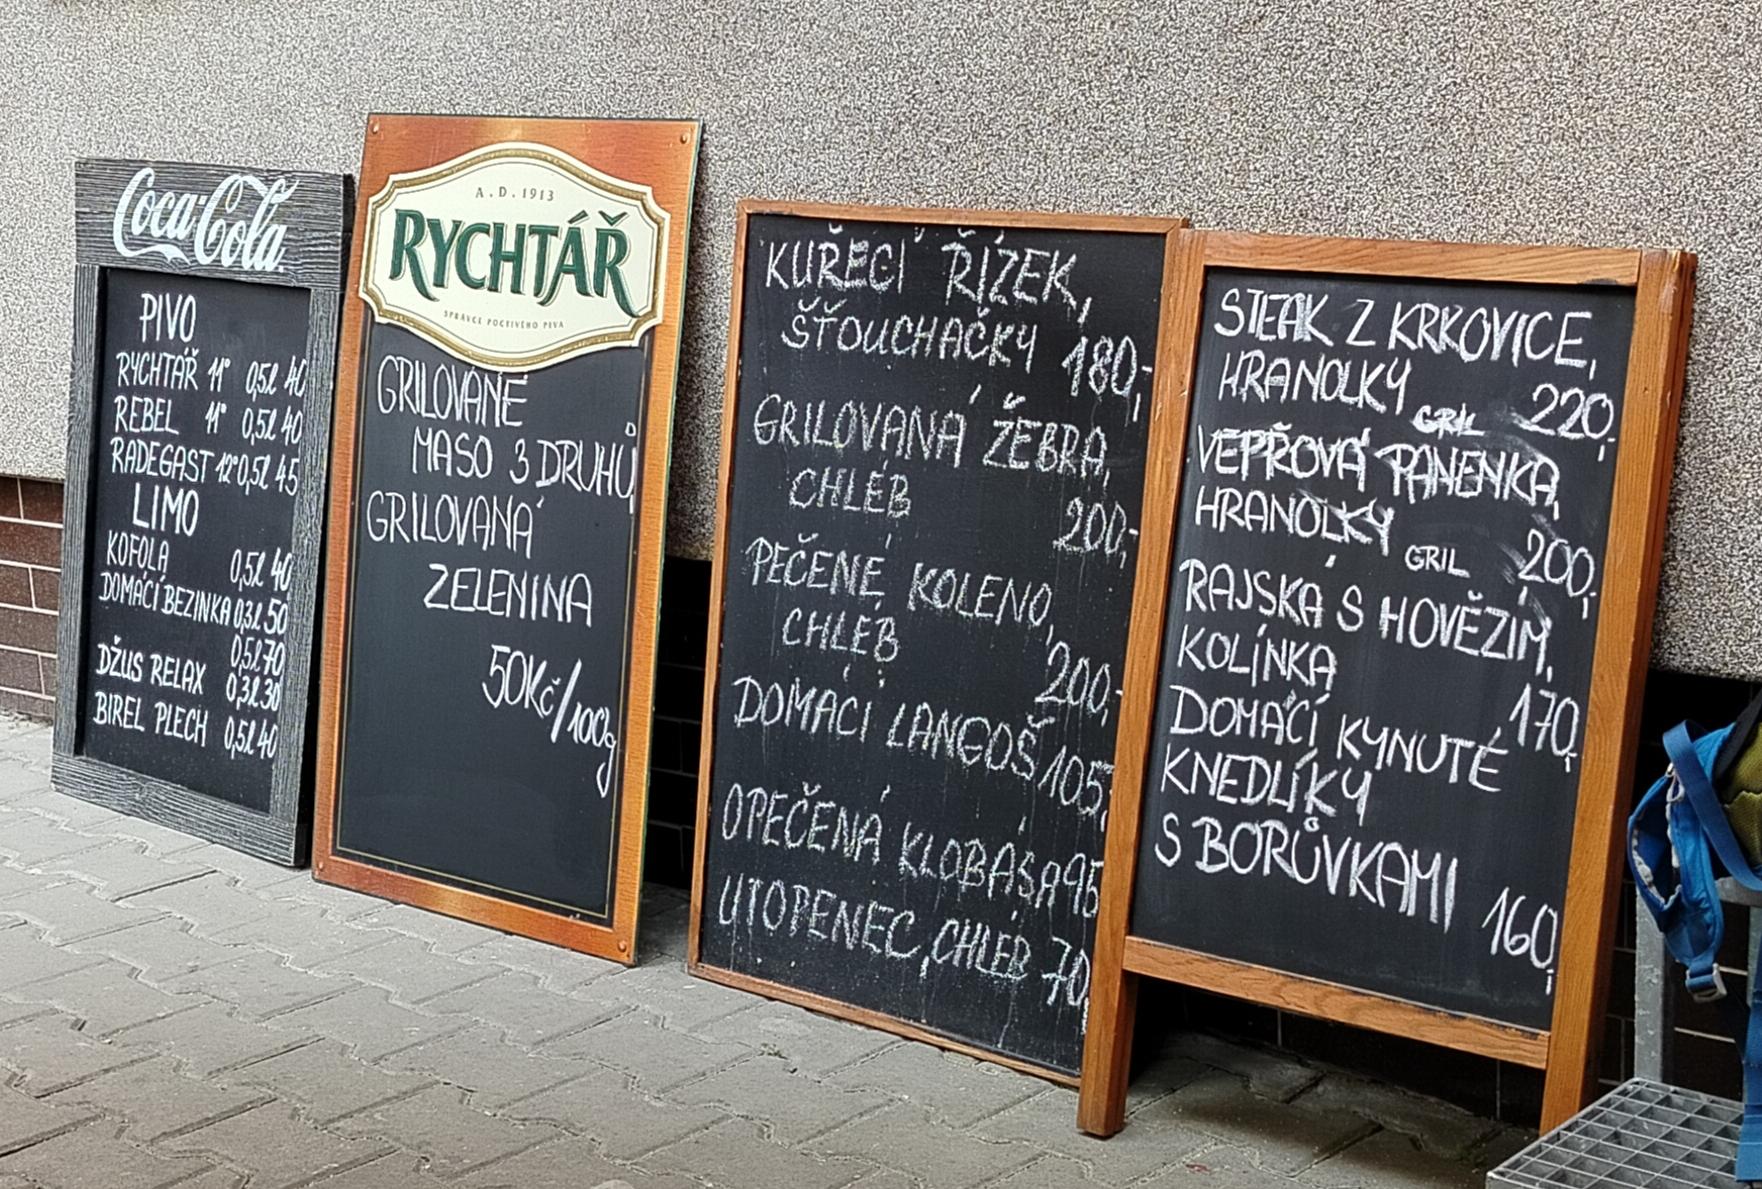 Coca-Cola
PIVO
RYCHTÁŘ 11° 0,5l 40
REBEL 11° 0,5l 40
RADEGAST 12° 0,5l 45
LIMO
KOFOLA 0,5l 40
DOMACÍ BEZINKA 0,3l 50
0,5l 70
DŽUS RELAX 0,3l 30
BIREL PLECH 0,5l 40
A.D. 1913
RYCHTÁŘ
SPRÁVCE POCTIVÉHO PIVA
GRILOVANÉ
MASO 3 DRUHŮ
GRILOVANÁ
ZELENINA
50Kč/100g
KUŘECÍ ŘÍZEK,
ŠŤOUCHAČKY 180,-
GRILOVANÁ ŽEBRA,
CHLÉB
200,-
PEČENÉ KOLENO,
CHLÉB
200,-
DOMÁCÍ LANGOŠ 105,-
OPEČENÁ KLOBÁSA 95
UTOPENEC, CHLÉB 70,
STEAK Z KRKOVICE,
HRANOLKY GRIL 220,-
VEPŘOVÁ PANENKA,
HRANOLKY GRIL 200,-
RAJSKÁ S HOVĚZÍM,
KOLÍNKA
170,-
DOMÁCÍ KYNUTÉ
KNEDLÍKY
S BORŮVKAMI
160,-